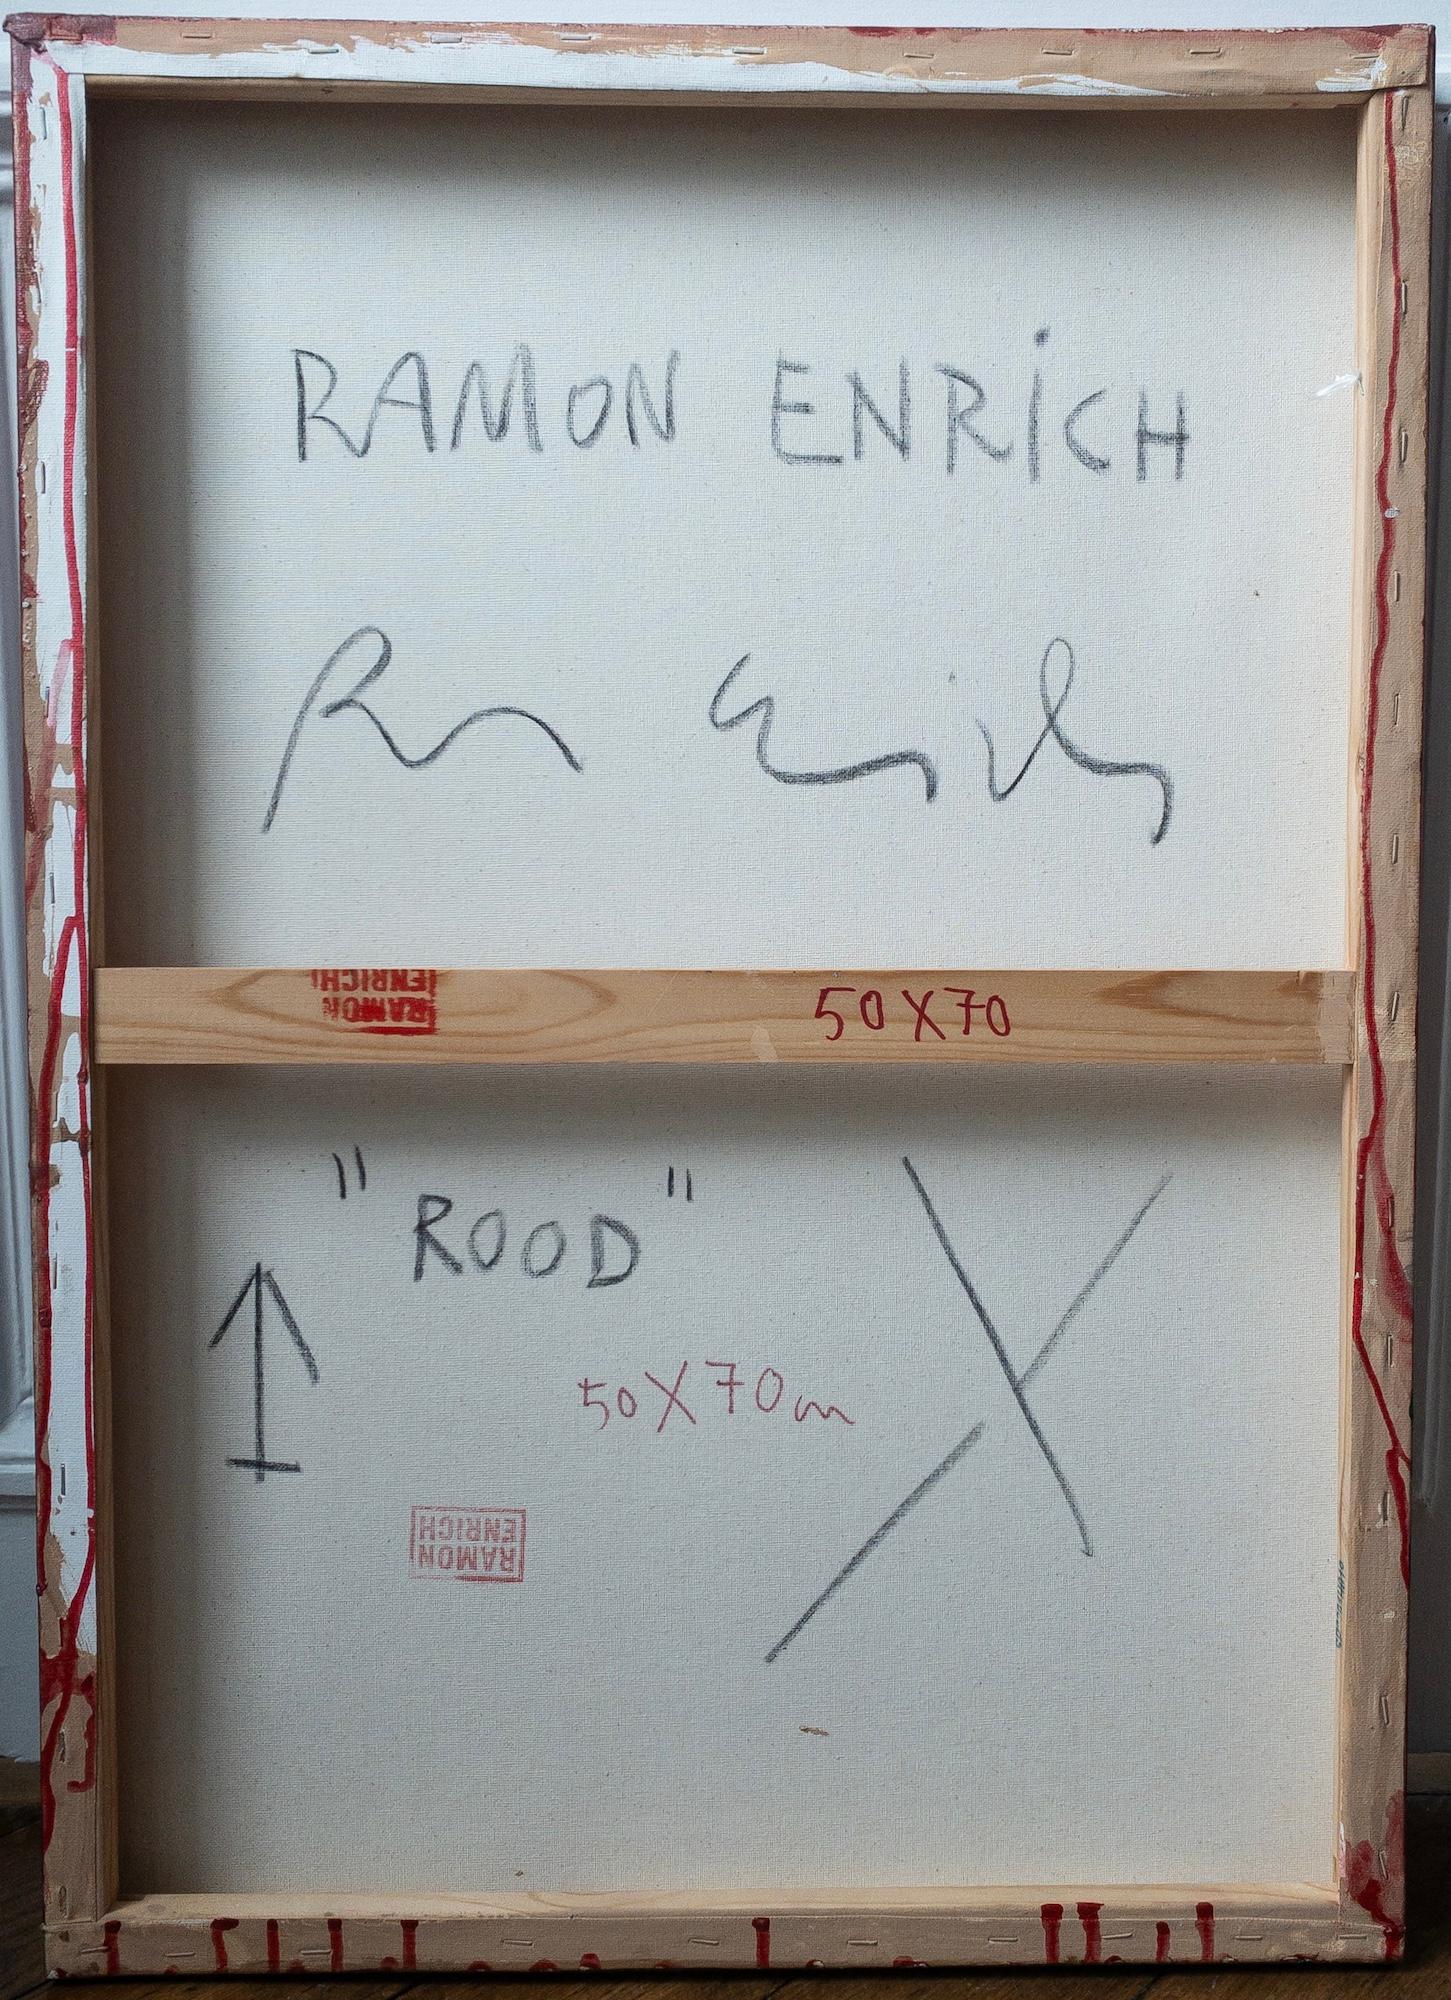 RAMON ENRiCH
Ramon Enrich
RAMON
ENRICH
50X70
"ROOD"
50X70cm
RAMON
ENRICH